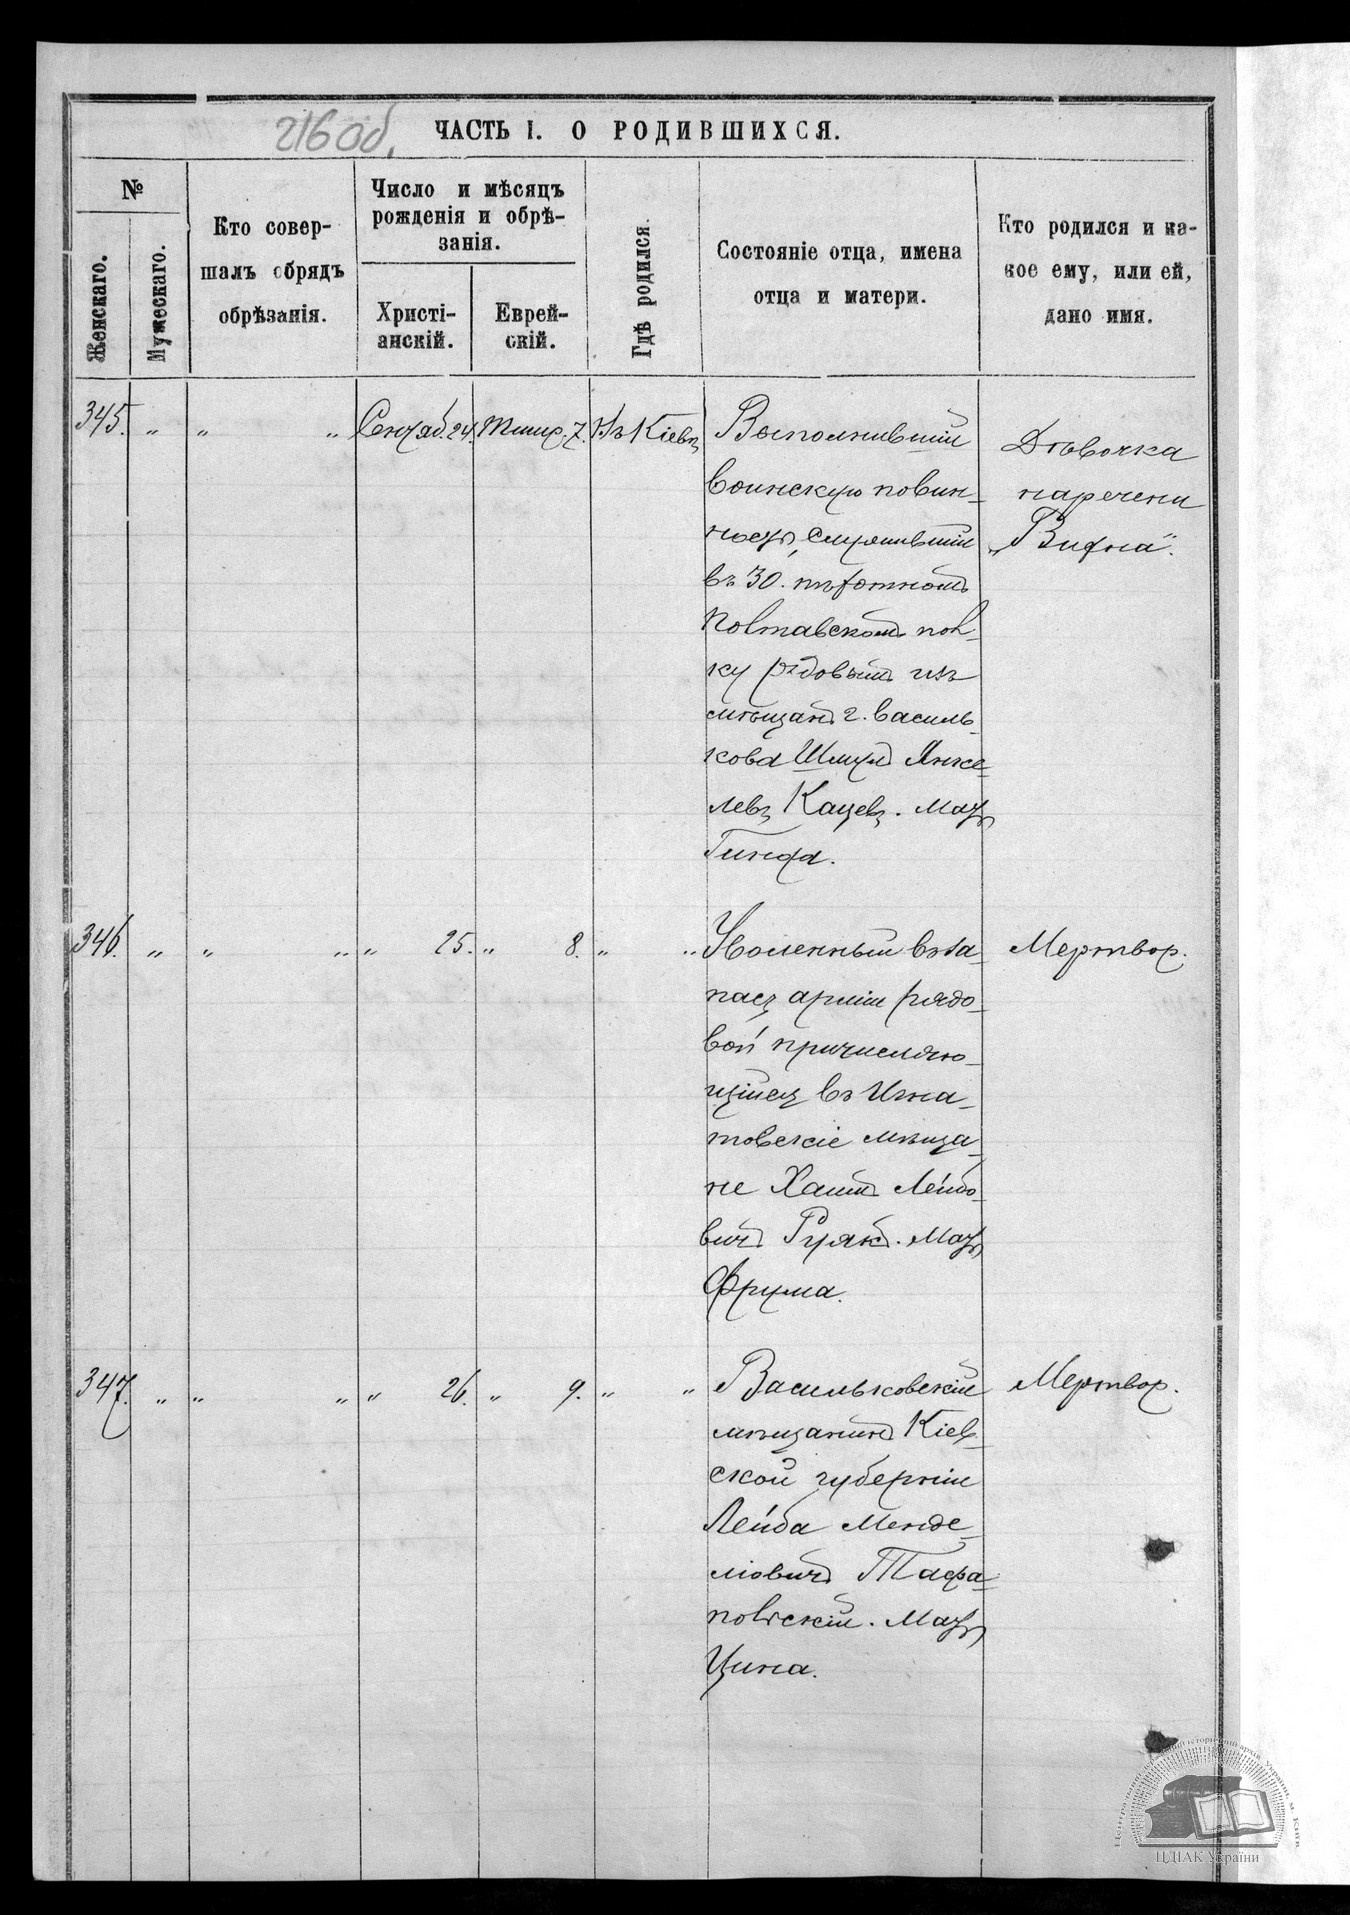 216 об.
ЧАСТЬ I. О РОДИВШИХСЯ.
№
Женскаго.
Мужескаго.
Кто совер-
шалъ обрядъ
обрѣзанія.
Число и мѣсяцъ
рожденія и обрѣ-
занія.
Христі-
анскій.
Еврей-
скій.
Гдѣ родился.
Состояніе отца, имена
отца и матери.
Кто родился и ка-
кое ему, или ей,
дано имя.
345. " " " Сентяб. 24. Тишр. 7. Въ Кіевѣ
Выполнившій
воинскую повин-
ность, служившій
въ 30. пѣхотномъ
Полтавскомъ пол-
ку рядовымъ изъ
мѣщанъ г. Василь-
кова Шмулъ Янке-
левъ Кацевъ. Мать
Гинда.
Дѣвочка
наречена
346. " " " " 25. " 8. " "
Уволенный въ за-
пасъ арміи рядо-
вой причисляю-
щійся въ Игна-
товскіе мѣща-
не Хаимъ Лейбо-
вичъ Гуякъ. Мать
Фрума.
Мертвор.
347. " " " " 26. " 9. " "
Васильковскій
мѣщанинъ Кіев-
ской губерніи
Лейба Менде-
ліовичъ
Мать
Цина.
Мертвор.
ЦДІАК України